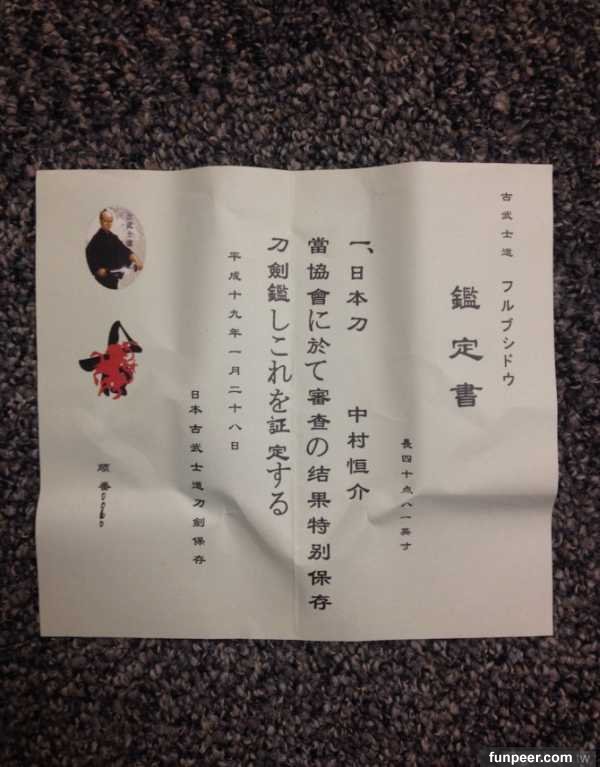 古武士道 フルブシドウ
鑑定書
長四十点八一英寸
一、日本刀 中村恒介
當協會に於て審査の结果特别保存
刀劍鑑しこれを証定する
平成十九年一月二十八日
日本古武士道刀劍保存
古武士道
順番
funpeer.com